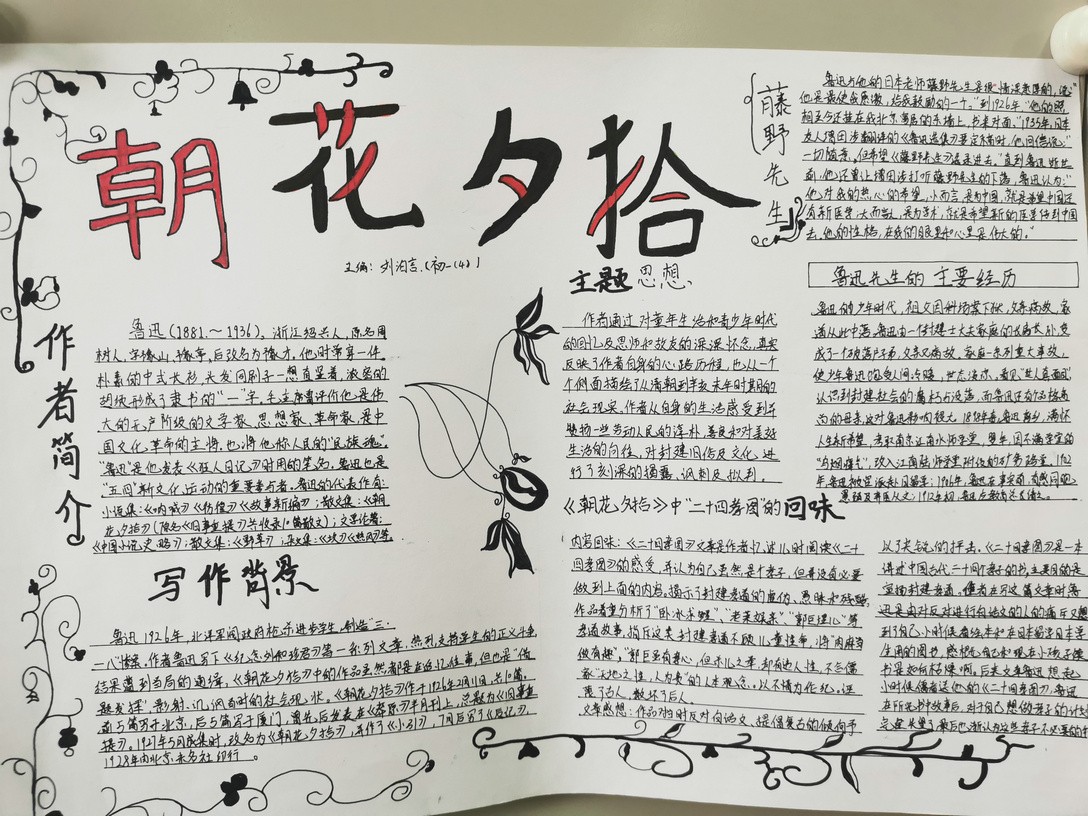 朝花夕拾
主编：刘治言.(初一(4))
作者简介
鲁迅(1881.～1936)，浙江绍兴人，原名周
树人，字豫山、豫亭，后改名为豫才，他时常穿一件
朴素的中式长衫，头发同刷子一想直竖着，浓密的
胡须形成了隶书的“一”字。毛主席曾评价他是伟
大的无产阶级的文学家、思想家、革命家，是中
国文化革命的主将。也将他称人民的“民族魂”。
“鲁迅”是他发表《狂人日记》时用的笔名，鲁迅也是
“五四”新文化运动的重要参与者。鲁迅的代表作有：
小说集：《呐喊》《彷徨》《故事新编》；散文集：《朝
花夕拾》(原名《旧事重提》共收录10篇散文)；文学论著：
《中国小说史略》；散文集：《野草》；杂文集：《坟》《热风》等.
写作背景
鲁迅1926年，北洋军阀政府枪杀进步学生，制造“三·
一八”惨案，作者鲁迅写下《纪念刘和珍君》等一系列文章，热烈支持学生的正义斗争
结果遭到当局的通缉，《朝花夕拾》中的作品虽然都是在追忆往事，但也是“借
题发挥”影射，讥讽当时的社会现状。《朝花夕拾》作于1926年2月11月，共10篇，
首5篇写于北京，后5篇写于厦门，最先后发表在《莽原》半月刊上，总题为《旧事重
提》，1927年5月成集时，改名为《朝花夕拾》，并作了《小引》，7月后写了《后记》，
1928年由北京未名社印行。
主题思想
作者通过对童年生活和青少年时代
的回忆及恩师和故友的深深怀念，真实
反映了作者自身的心路历程，也从一个
个侧面描绘了从清朝到辛亥末年时期的
社会现实。作者从自身的生活感受到平
劳动人民的淳朴、善良和对美好
生活的向往，对封建旧俗及文化，进
行了刻深的揭露、讽刺及批判。
藤野先生
鲁迅与他的日本老师藤野先生是很情深意厚的，说“
他是最使我感激，给我鼓励的一个。”到1926年“他的照
相至今还挂在我北京寓居的东墙上，书桌对面。”1935年，日本
友人增田涉翻译的《鲁迅选集》要定书目时，他回信说：“
一切随意，但希望《藤野先生》选录进去。”直到鲁迅逝世
面，他还曾让增田涉打听藤野先生的下落，鲁迅认为：“
他对我的热心的希望，小而言，是为中国，就是希望中国还
有新医学；大而言，是为学术，就是希望新的医学传到中国
去，他的性格，在我的眼里和心里是伟大的。”
鲁迅先生的主要经历
鲁迅的少年时代，祖父因科场案下狱，父亲病故，家
道从此中落。鲁迅由一个封建士大夫家庭的长房长孙，变
成了个破落户子弟，父亲又病故，家庭一系列重大事故，
使少年鲁迅饱受人间冷暖、世态凉炎，看见“世人真面目”，
认识到封建社会的腐朽与没落，而鲁迅还有个品格高
尚的母亲，这对鲁迅影响很大。1898年春，鲁迅离乡，满怀
人生新希望，考取南京江南水师学堂，翌年，因不满学堂的
“乌烟瘴气”，改入江南陆师学堂附设的矿务路学堂，1902
年鲁迅被官派赴日留学；1906年，鲁迅在事实前有感问题，
毅然弃医从文；1912年初，鲁迅在教育总长任
《朝花夕拾》中“二十四孝图”的回味
内写回味：《二十四孝图》文章是作者忆述儿时阅读《二十
四孝图》的感受，并认为自己虽然是个孝子，但并没有必要
做到上面的内容。揭示了封建孝道的虚伪、愚昧和残酷，
作品着重分析了“卧冰求鲤”、“老莱娱亲”、“郭巨埋儿”等
孝道故事，指斥这类封建孝道不顾儿童性命，将“肉麻当
做有趣”，“郭巨虽有孝心，但不
家“天地之性，人为贵”的人道观念。以不情为伦纪。诬
蔑了古人，教坏了后人。
文章感想：作品对当时反对白话文，提倡复古的倾向予
以了尖锐的抨击。《二十四孝图》是一本
讲述中国古代二十四个孝子的书，主要目的是
宣扬封建孝道。
还是由对反对进行白话文的人的痛斥又想
到了自己小时候看绘本和在日本留日本学
生画的图书，感想先自己和现在小孩子读
书是如何枯燥啊。后来文章鲁迅想起
小时候偶看送他的《二十四孝图》，鲁迅
在所先听故事后，对于自己想做孝子的计划
完全绝望了，最后也渐认为这些孝子不必要的